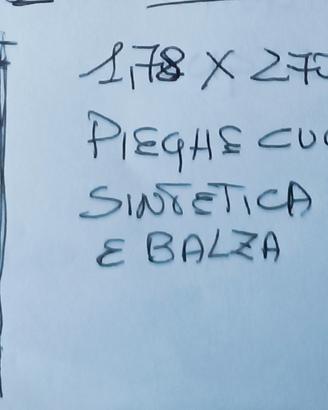 1,78 X 270
PIEGHE CU
SINTETICA
E BALZA